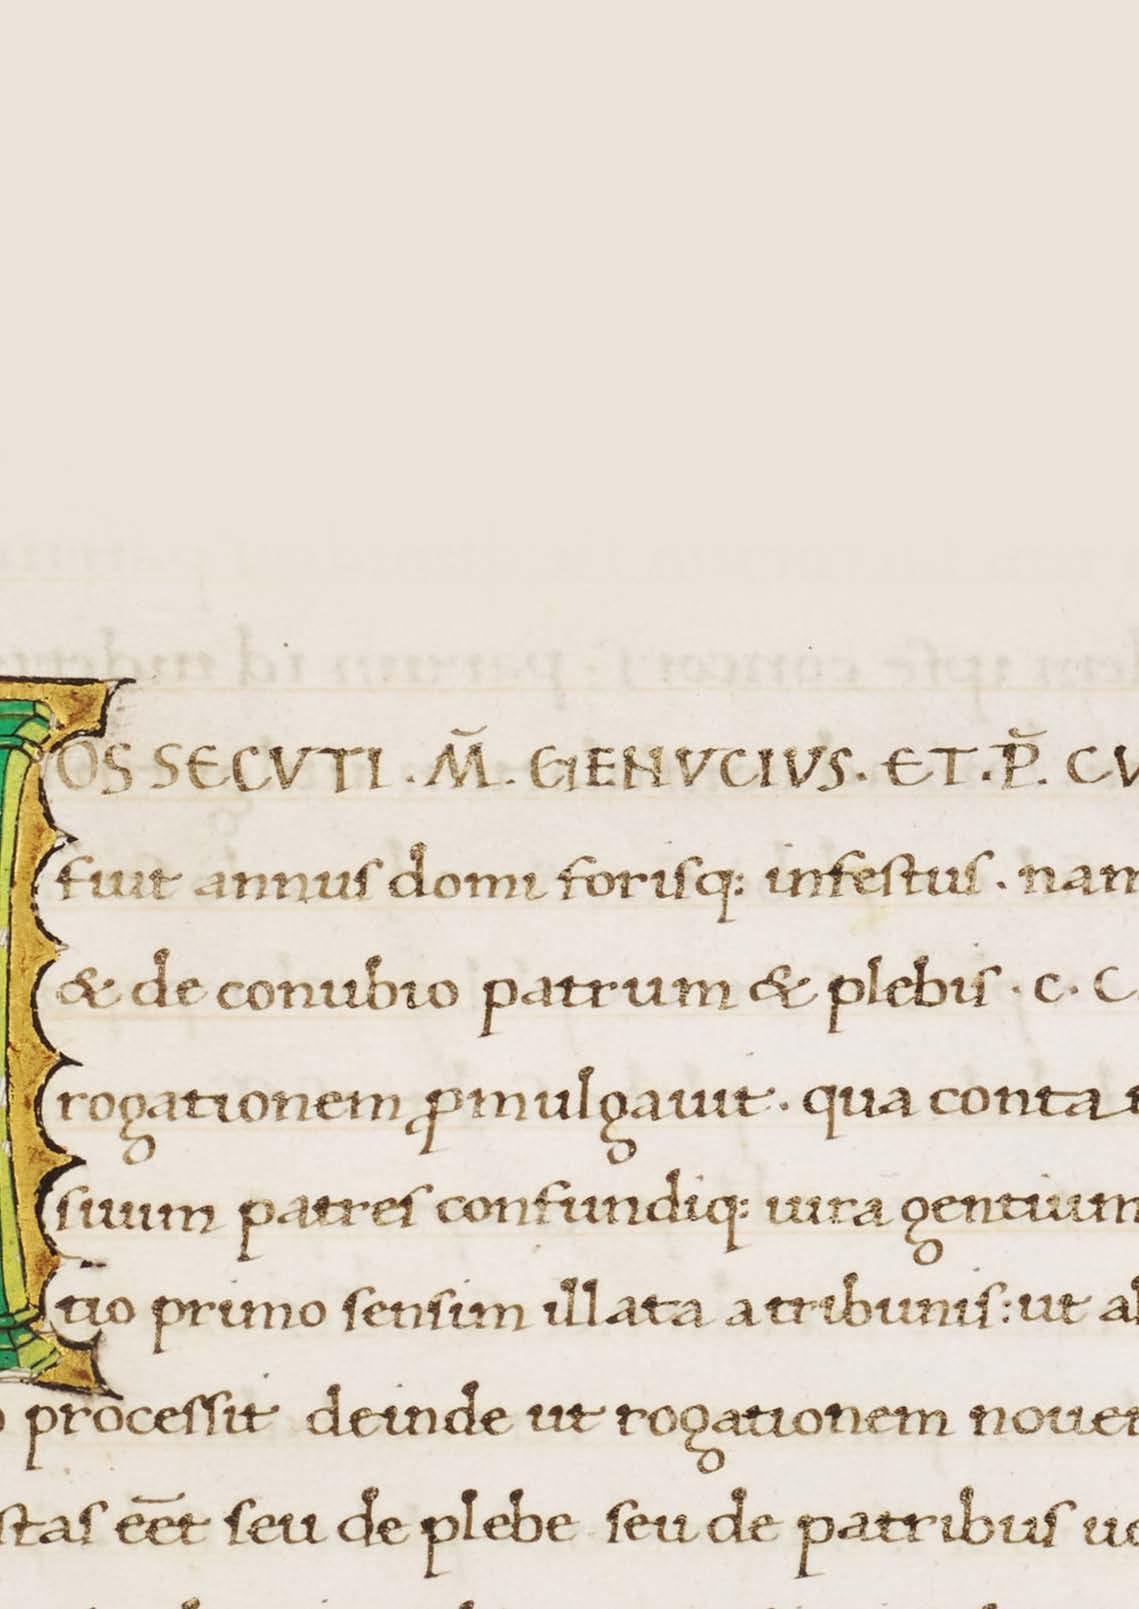 OS SECVTI · M̄ · GENVCIVS · ET · P̄ · CV
fuit annus domi forisq: infestus · nam
& de conubio patrum & plebis · c · C
rogationem ꝓmulgauit · qua conta
suum patres confundiq: iura gentium
tio primo sensim illata a tribunis: ut al
o processit deinde ut rogationem nouem
stas eēt seu de plebe seu de patribus ue